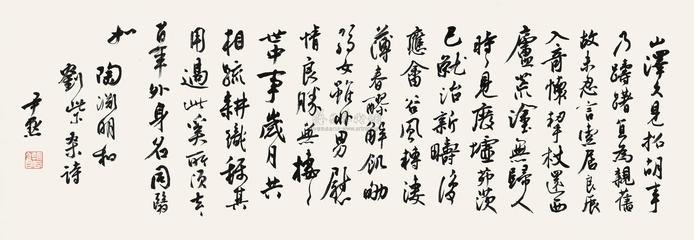 山澤久見招胡事
乃躊躇直為親舊
故未忍言索居良辰
入奇懷挈杖還西
廬荒塗無歸人
時〻見廢墟茅茨
已就治新疇復
應畬谷風轉淒
薄春醪解飢劬
弱女雖非男慰
情良勝無棲〻
世中事歲月共
相疏耕織稱其
用過此奚所須去〻
百年外身名同翳
如 陶淵明和
劉柴桑詩
尹默